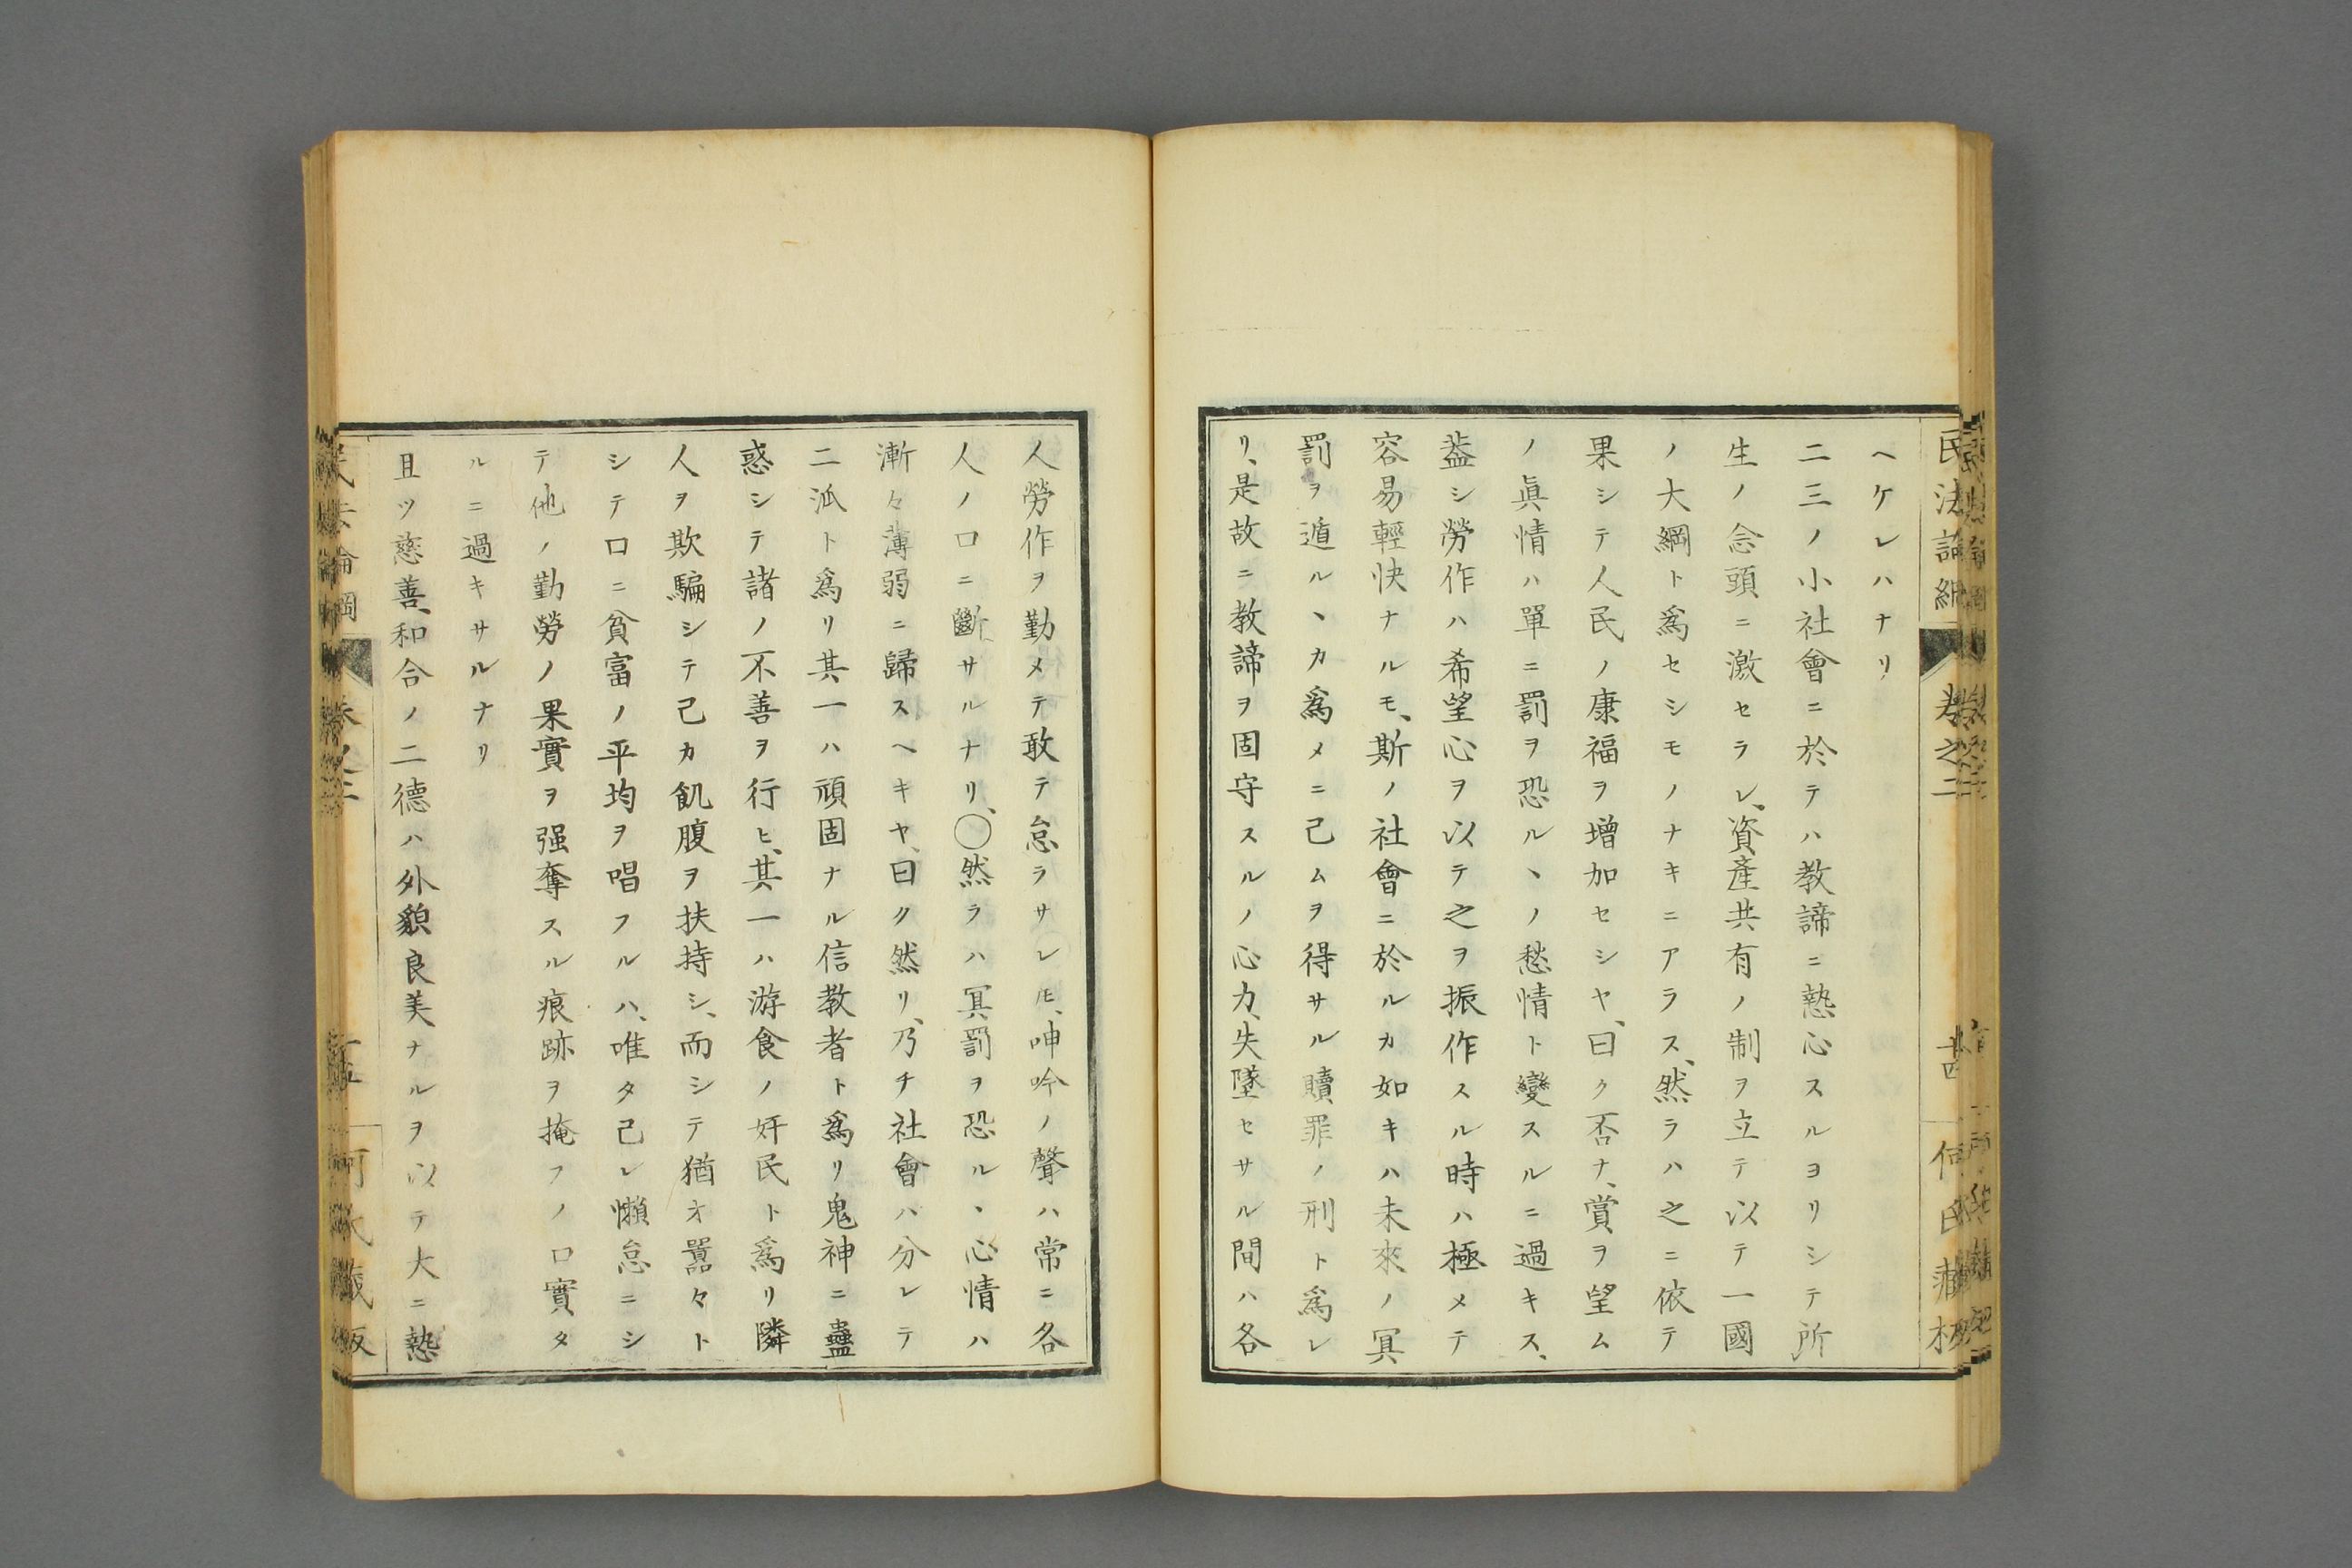 ヘケレハナリ
二三ノ小社會ニ於テハ教諦ニ熱心スルヨリシテ所
生ノ念頭ニ激セラレ、資產共有ノ制ヲ立テ以テ一國
ノ大綱ト爲セシモノナキニアラス、然ラハ之ニ依テ
果シテ人民ノ康福ヲ增加セシヤ、曰ク否ナ、賞ヲ望ム
ノ眞情ハ單ニ罰ヲ恐ルヽノ愁情ト變スルニ過キス、
葢シ勞作ハ希望心ヲ以テ之ヲ振作スル時ハ極メテ
容易輕快ナルモ、斯ノ社會ニ於ルカ如キハ未來ノ冥
罰ヲ遁ルヽカ爲メニ已ムヲ得サル贖罪ノ刑ト爲レ
リ、是故ニ教諦ヲ固守スルノ心力、失墜セサル間ハ各
人勞作ヲ勤メテ敢テ怠ラサレ𪜈、呻吟ノ聲ハ常ニ各
人ノ口ニ斷、サルナリ、〇然ラハ冥罰ヲ恐ルヽ心情ハ
漸々薄弱ニ歸スヘキヤ、曰ク然リ、乃チ社會ハ分レテ
二派ト爲リ其一ハ頑固ナル信教者ト爲リ鬼神ニ蠱
惑シテ諸ノ不善ヲ行ヒ、其一ハ游食ノ奸民ト爲リ隣
人ヲ欺騙シテ己カ飢腹ヲ扶持シ、而シテ猶ホ囂々ト
シテ口ニ貧富ノ平均ヲ唱フルハ、唯タ己レ懶怠ニシ
テ他ノ勤勞ノ果實ヲ强奪スル痕跡ヲ掩フノ口實タ
ルニ過キサルナリ
且ツ慈善、和合ノ二德ハ外貌良美ナルヲ以テ大ニ熱